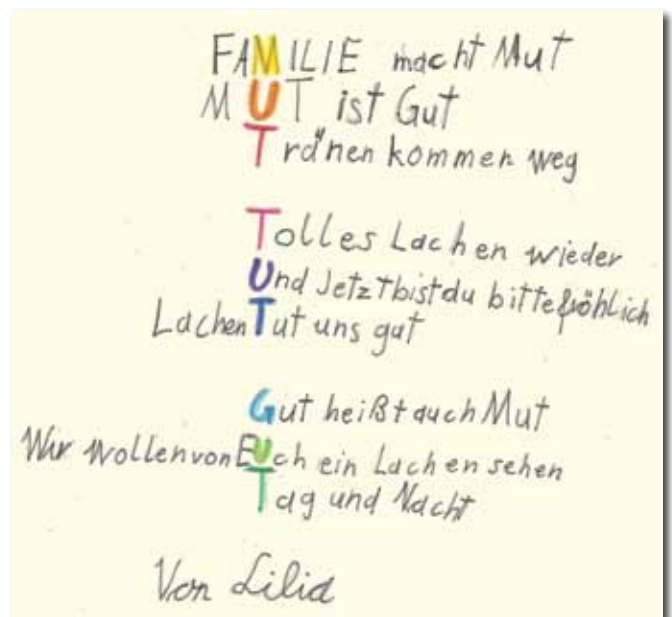 FAMILIE macht Mut
MUT ist Gut
Tränen kommen weg
Tolles Lachen wieder
Und Jetzt bist du bitte fröhlich
Lachen Tut uns gut
Gut heißt auch Mut
Wir wollen von Euch ein Lachen sehen
Tag und Nacht
Von Lilia